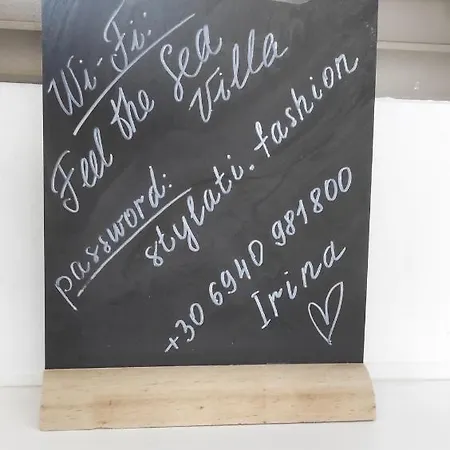 Wi-Fi:
Feel the Sea
Villa
password:
stylati.fashion
+30 6940 981800
Irina